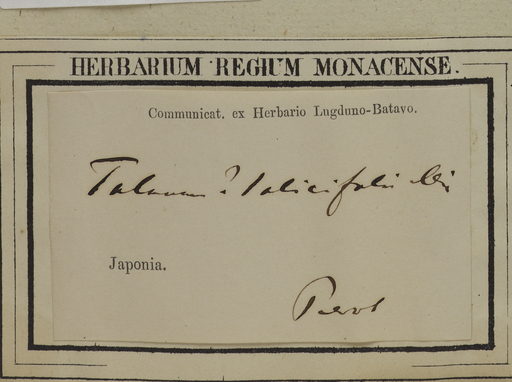 HERBARIUM REGIUM MONACENSE.
Communicat. ex Herbario Lugduno-Batavo.
Talauma ? salicifolia
Japonia.